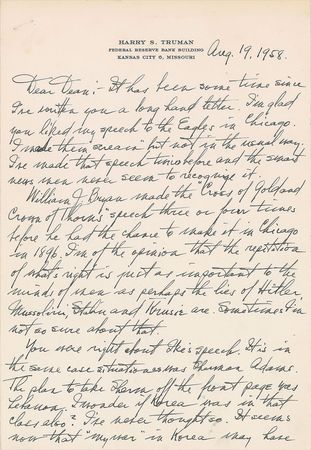 HARRY S. TRUMAN
FEDERAL RESERVE BANK BUILDING
KANSAS CITY 6, MISSOURI
Aug. 19, 1958.
Dear Dean: It has been some time since
I've written you a long hand letter. I'm glad
you liked my speech to the Eagles in Chicago.
I made them scream but not in the usual way.
I've made that speech twice before and the smart
news men never seem to recognize it.
William J. Bryan made the Cross of Gold and
Crown of thorns speech three or four times
before he had the chance to make it in Chicago
in 1896. I'm of the opinion that the repetition
of what's right is just as important to the
minds of men as perhaps the lies of Hitler
Mussolini, Stalin and Krus are. Sometimes I'm
not so sure about that.
You were right about Ike's speech. It is in
the same case situation as was Sherman Adams.
The plan to take Sherm off the front page was
Lebanon. I wonder if Korea was in that
class also? I've never thought so. It seems
now that "my war" in Korea may have